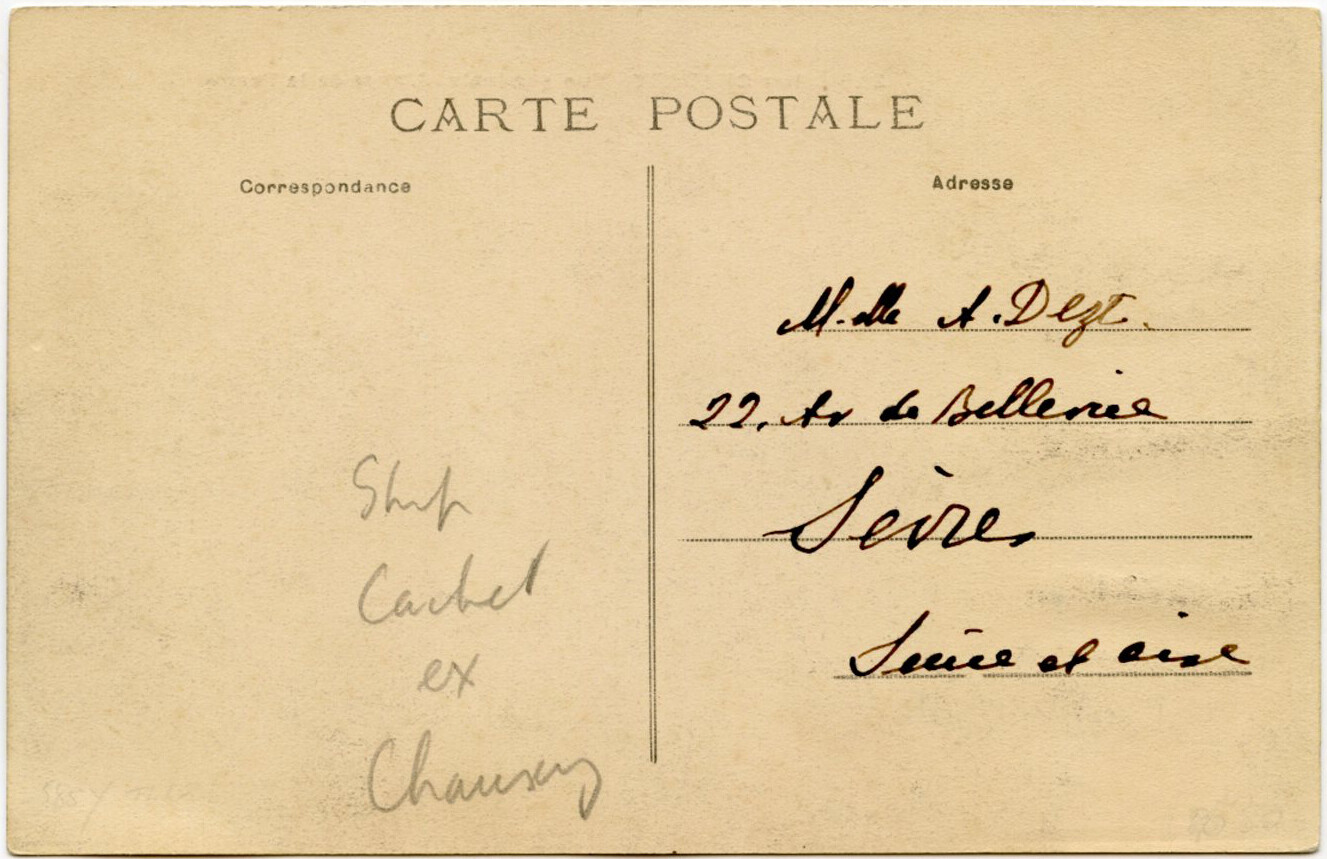 CARTE POSTALE
Correspondance
Adresse
M.elle A. Dezt.
22, Av de Bellevue
Sèvres
Seine et oise
Ship
Cachet
ex
Chausey